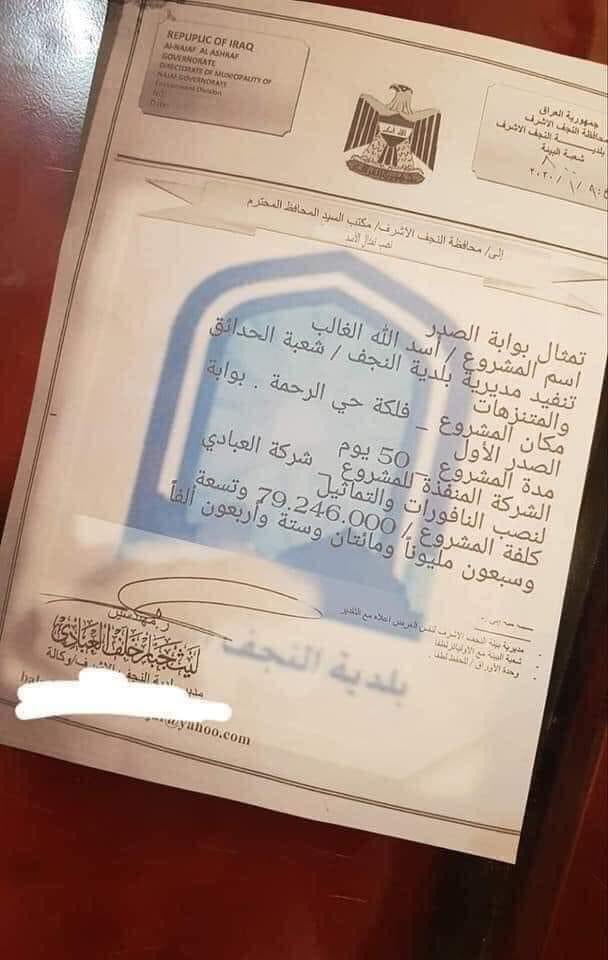 REPUPLIC OF IRAQ
Al-NAJAF AL ASHRAF
GOVERNORATE
DIRECTORATE OF MUNICIPALITY OF
NAJAF GOVERNORATE
Environment Division
NO:
Date:
جمهورية العراق
محافظة النجف الاشرف
بلدية النجف الاشرف
شعبة البيئة
إلى/ محافظة النجف الأشرف/ مكتب السيد المحافظ المحترم
نصب تمثال الأسد
تمثال بوابة الصدر
اسم المشروع / أسد الله الغالب
تنفيد مديرية بلدية النجف / شعبة الحدائق
والمتنزهات
مكان المشروع _ فلكة حي الرحمة . بوابة
الصدر الأول
مدة المشروع _ 50 يوم
الشركة المنفذة للمشروع _ شركة العبادي
لنصب النافورات والتماثيل
كلفة المشروع / 79.246.000 وتسعة
وسبعون مليوناً ومائتان وستة وأربعون ألفاً
مديرية بيئة النجف الاشرف لنفس الغرض اعلاه مع التقدير
شعبة البيئة مع الاوليات لطفا
وحدة الأوراق / للحفظ لطفا
ر مهندسين
ليث جبار خلف العبادي
مدير بلدية النجف الاشرف/وكالة
بلدية النجف
@yahoo.com